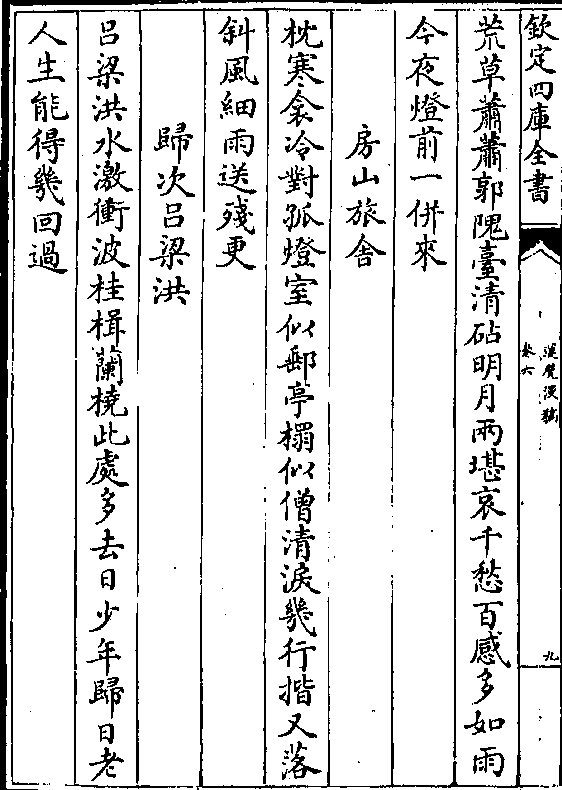 欽定四庫全書
漢濱漫稿
卷六
九
荒草蕭蕭郭隗臺清砧明月兩堪哀千愁百感多如雨
今夜燈前一併來
房山旅舍
枕寒衾冷對孤燈室似郵亭榻似僧清淚幾行揩又落
斜風細雨送殘更
歸次吕梁洪
吕梁洪水激衝波桂楫蘭橈此處多去日少年歸日老
人生能得幾回過